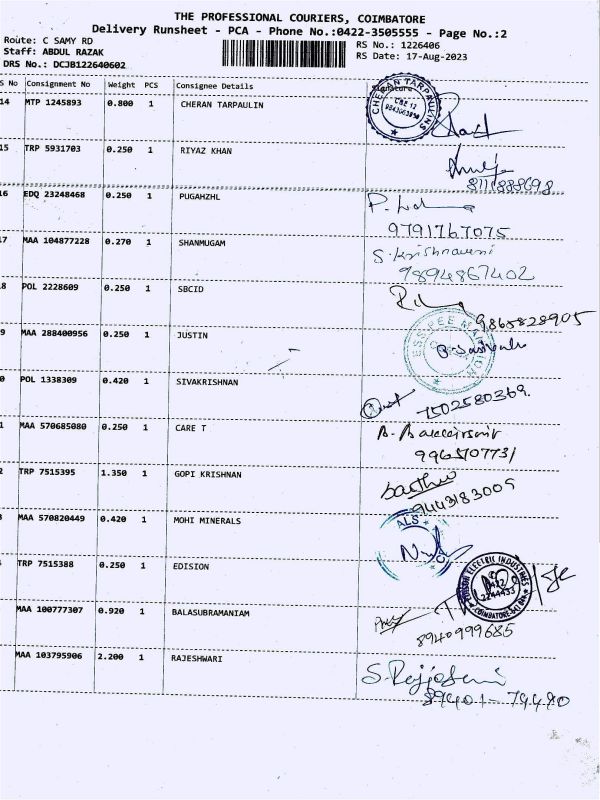 THE PROFESSIONAL COURIERS, COIMBATORE
Delivery Runsheet - PCA - Phone No.:0422-3505555 - Page No.:2
Route: C SAMY RD
Staff: ABDUL RAZAK
DRS No.: DCJB122640602
RS No.: 1226406
RS Date: 17-Aug-2023
S No Consignment No Weight PCS Consignee Details
14 MTP 1245893 0.800 1 CHERAN TARPAULIN
CHERAN TARPAULINS
CBE 12
15 TRP 5931703 0.250 1 RIYAZ KHAN
8111888698
16 EDQ 23248468 0.250 1 PUGAHZHL
9791767075
17 MAA 104877228 0.270 1 SHANMUGAM
S. Krishnaveni
9894867402
8 POL 2228609 0.250 1 SBCID
9865828905
9 MAA 288400956 0.250 1 JUSTIN
0 POL 1338309 0.420 1 SIVAKRISHNAN
7502580369.
1 MAA 570685080 0.250 1 CARE T
9965107731
2 TRP 7515395 1.350 1 GOPI KRISHNAN
9443183009
MAA 570820449 0.420 1 MOHI MINERALS
ALS
TRP 7515388 0.250 1 EDISION
ELECTRIC INDUSTRIES
0422
2244433
MAA 100777307 0.920 1 BALASUBRAMANIAM
8940999685
MAA 103795906 2.200 1 RAJESHWARI
89401-74480